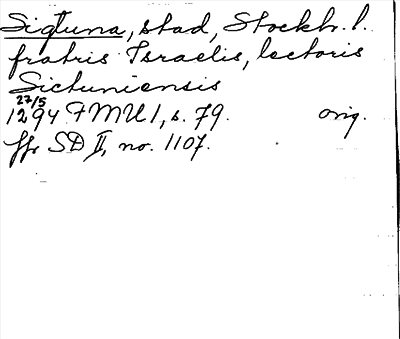 Sigtuna, stad, Stockh. l.
fratris Israelis, lectoris
Sictuniensis
27/5
1294 FMU 1, s. 79. orig.
jfr SD II, no. 1107.